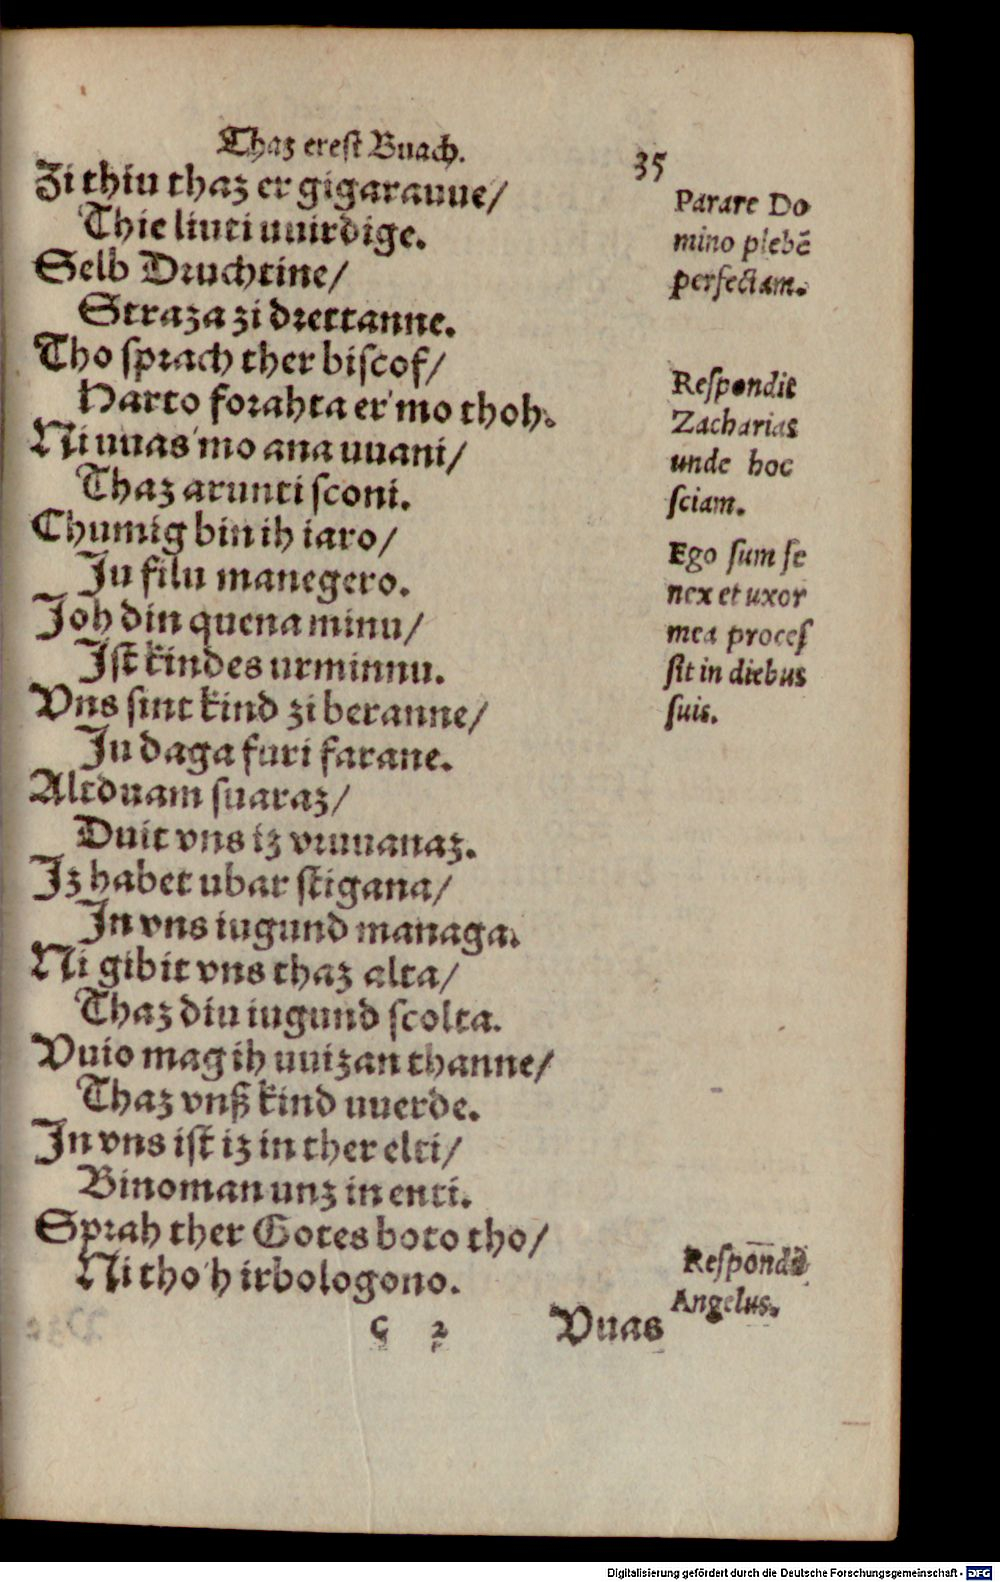 Thaz erest Buach.
35
Zi thiu thaz er gigarauue/
Thie liuti uuirdige.
Selb Druchtine/
Straza zi drettanne.
Tho sprach ther biscof/
Harto forahta er'mo thoh.
Ni uuas'mo ana uuani/
Thaz arunti sconi.
Chumig bin ih iaro/
Ju filu manegero.
Joh din quena minu/
Jst kindes urminnu.
Vns sint kind zi beranne/
Ju daga furi farane.
Altduam suaraz/
Duit vns iz vruuanaz.
Jz habet ubar stigana/
Jn vns iugund managa.
Ni gibit vns thaz alta/
Thaz diu iugund scolta.
Vuio mag ih uuizan thanne/
Thaz vnß kind uuerde.
Jn vns ist iz in ther elti/
Binoman unz in enti.
Sprah ther Gotes boto tho/
Ni tho'h irbologono.
Parare Do
mino plebē
perfectam.
Respondit
Zacharias
unde hoc
sciam.
Ego sum se
nex et uxor
mea proces
sit in diebus
suis.
Angelus.
c 2
Vuas
Digitalisierung gefördert durch die Deutsche Forschungsgemeinschaft - DFG